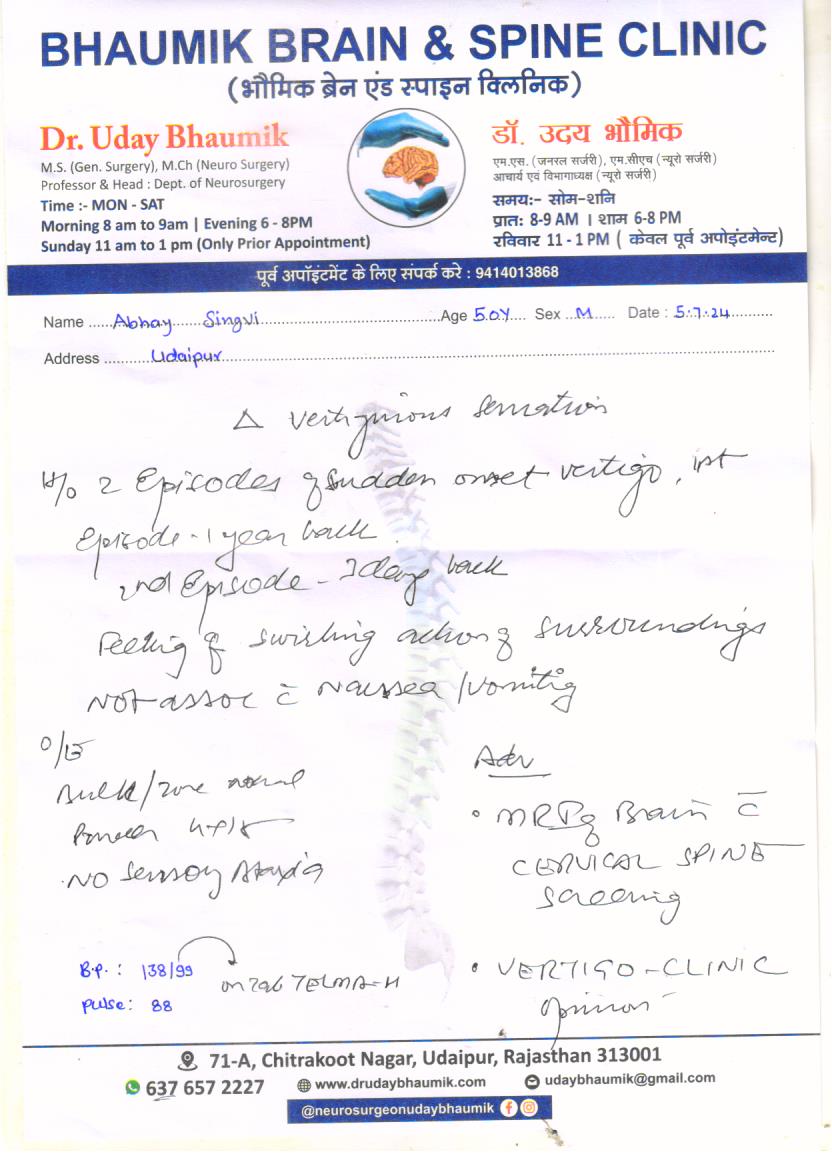 BHAUMIK BRAIN & SPINE CLINIC
(भौमिक ब्रेन एंड स्पाइन क्लिनिक)
Dr. Uday Bhaumik
M.S. (Gen. Surgery), M.Ch (Neuro Surgery)
Professor & Head : Dept. of Neurosurgery
Time :- MON - SAT
Morning 8 am to 9am | Evening 6 - 8PM
Sunday 11 am to 1 pm (Only Prior Appointment)
डॉ. उदय भौमिक
एम.एस. (जनरल सर्जरी), एम.सीएच (न्यूरो सर्जरी)
आचार्य एवं विभागाध्यक्ष (न्यूरो सर्जरी)
समय:- सोम-शनि
प्रातः 8-9 AM । शाम 6-8 PM
रविवार 11 - 1 PM ( केवल पूर्व अपोइंटमेन्ट)
पूर्व अपॉइंटमेंट के लिए संपर्क करे : 9414013868
Name ......Abhay Singvi......Age 50Y.... Sex ..M..... Date : 5.7.24
Address ...........Udaipur
Δ Vertiginious Sensation
H/o 2 Episodes of sudden onset vertigo, Ist
Episode - 1 year back
2nd Episode - 3 days back
Feeling of swirling action of surroundings
Not assoc c̄ Nausea/vomitig
O/E
Bulk/Tone normal
Power
NO Sensory Ataxia
B.P. : 138/99
on Tab TELMA-H
Pulse: 88
Adv
• MRI of Brain c̄
CERVICAL SPINE
Screening
• VERTIGO-CLINIC
opinion
71-A, Chitrakoot Nagar, Udaipur, Rajasthan 313001
637 657 2227 www.drudaybhaumik.com udaybhaumik@gmail.com
@neurosurgeonudaybhaumik